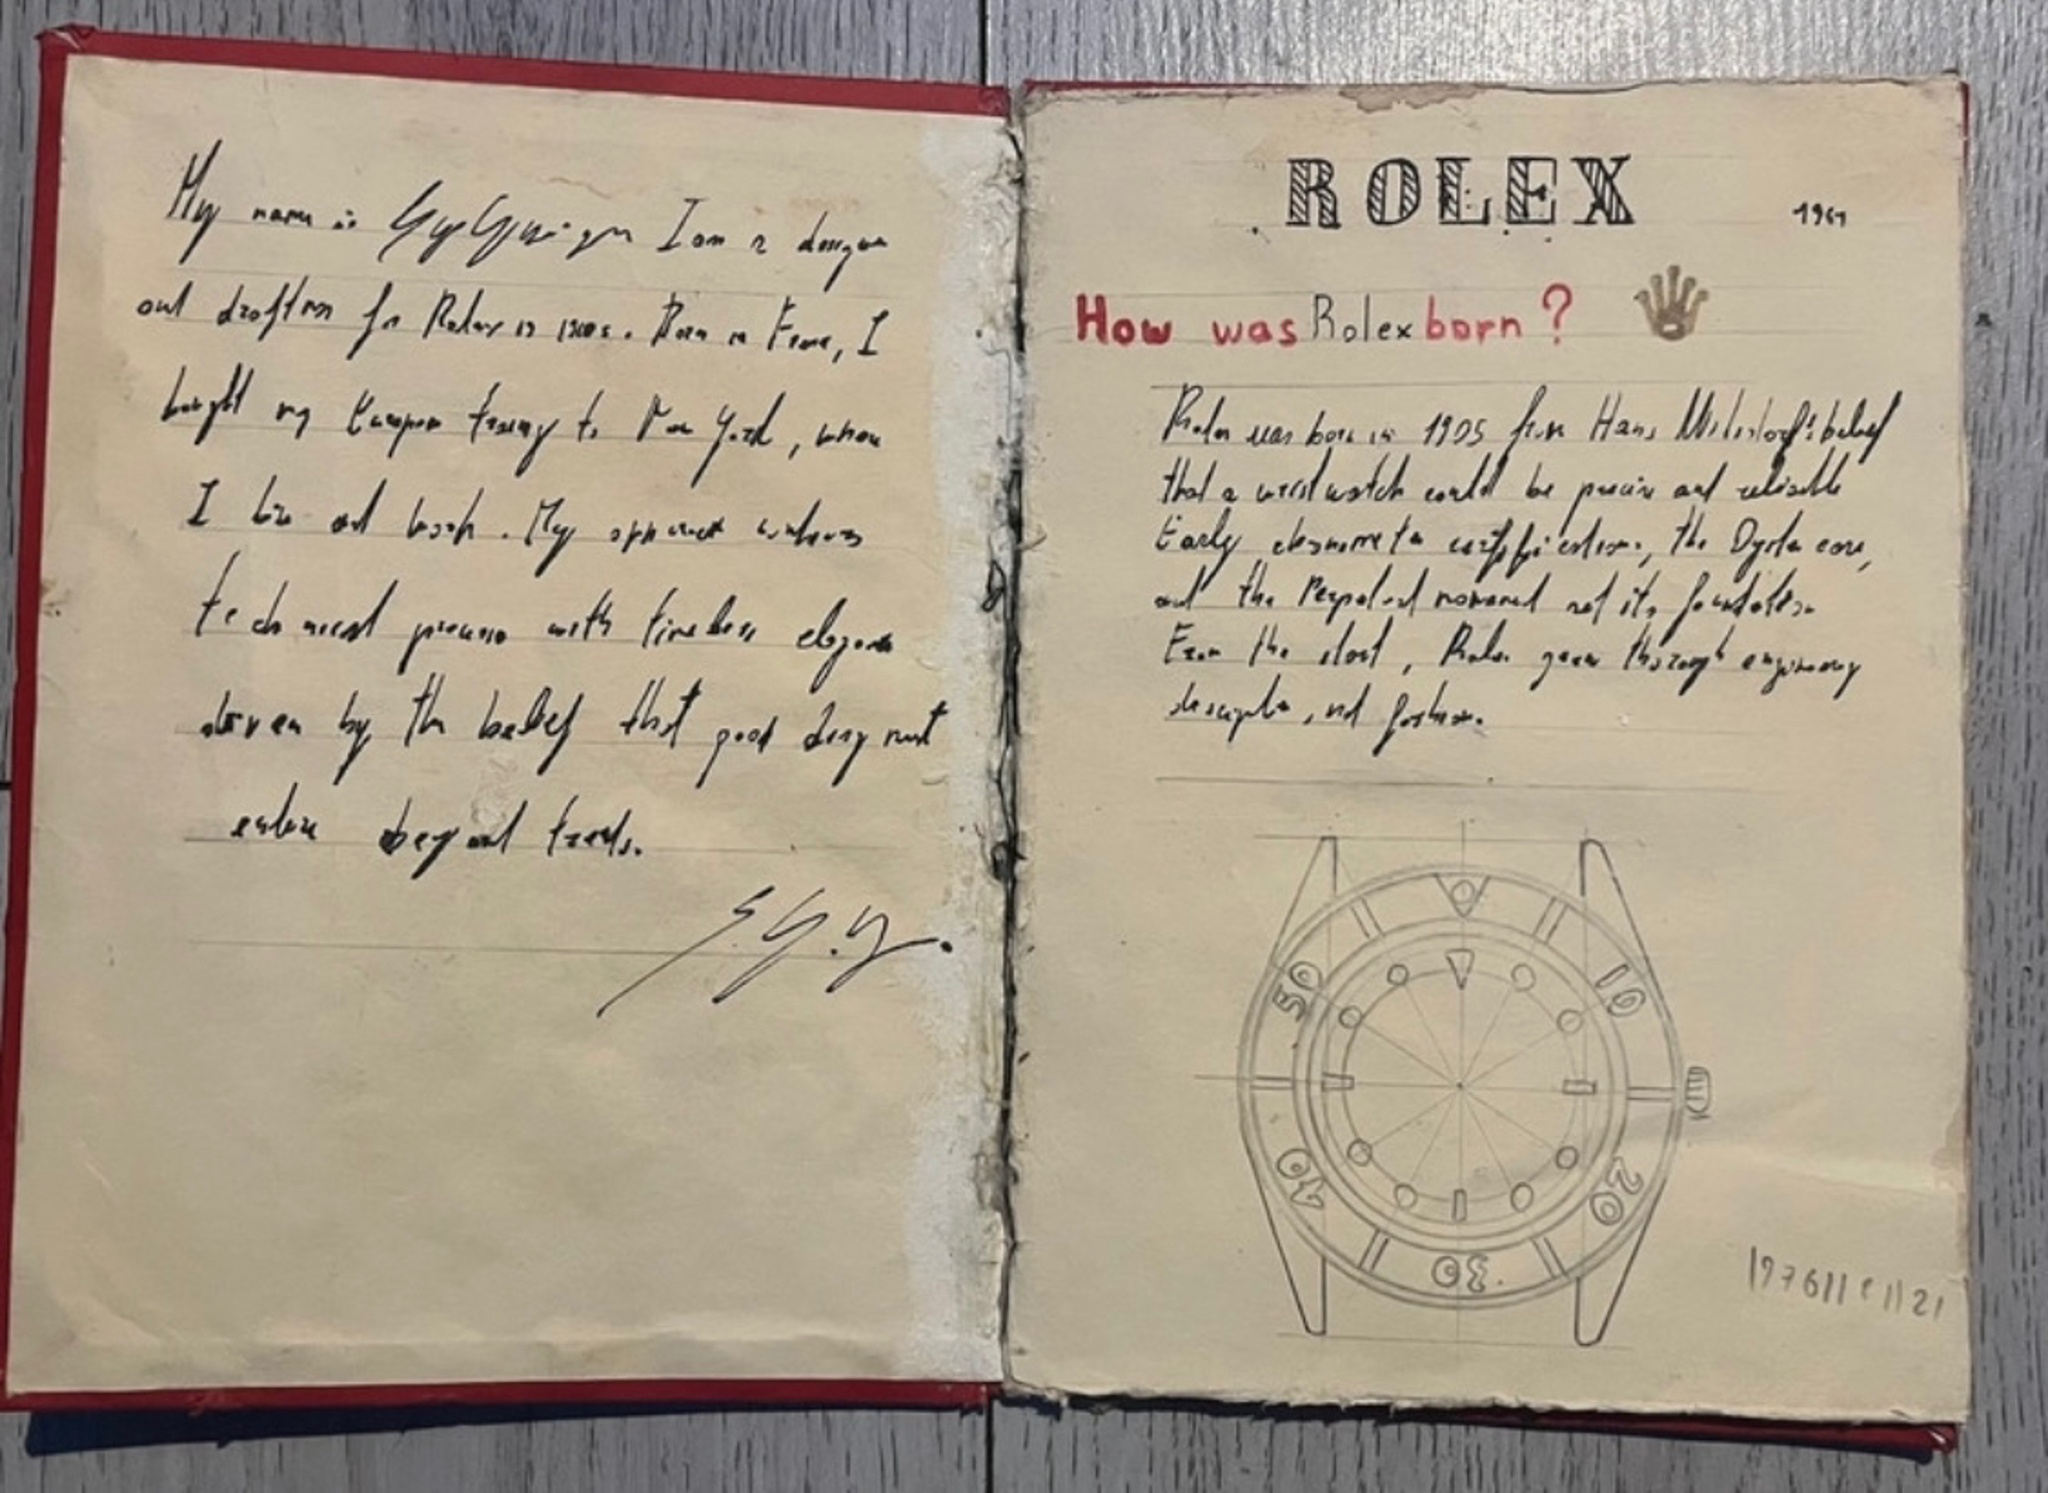 My name is I am a designer
and draftsman for Rolex in 1960s. Born in France, I
brought my European training to New York, where
I live and work. My approach combines
technical precision with timeless elegance
driven by the belief that good design must
endure beyond trends.
ROLEX
1961
How was Rolex born?
Rolex was born in 1905 from Hans Wilsdorf's belief
that a wristwatch could be precise and reliable
Early chronometer certifications, the Oyster case,
and the Perpetual movement set its foundation
From the start, Rolex grew through engineering
discipline, not fashion.
50
10
40
20
30